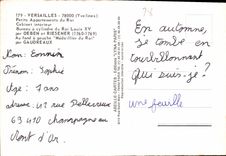 179 - VERSAILLES - 78000 (Yvelines)
Petits Appartements du Roi
Cabinet intérieur
Bureau à cylindre du Roi Louis XV
par OEBEN et RIESENER (1760-1769)
Au fond à gauche "Médaillier du Roi"
par GAUDREAUX
Nom: Bonnin
Prénom: Sophie
Age: 7 ans
adresse: 102 rue
63 410 champagne au
Mont d'Or.
En automne,
je tombe en
tourbillonnant
Qui suis-je?
une feuille